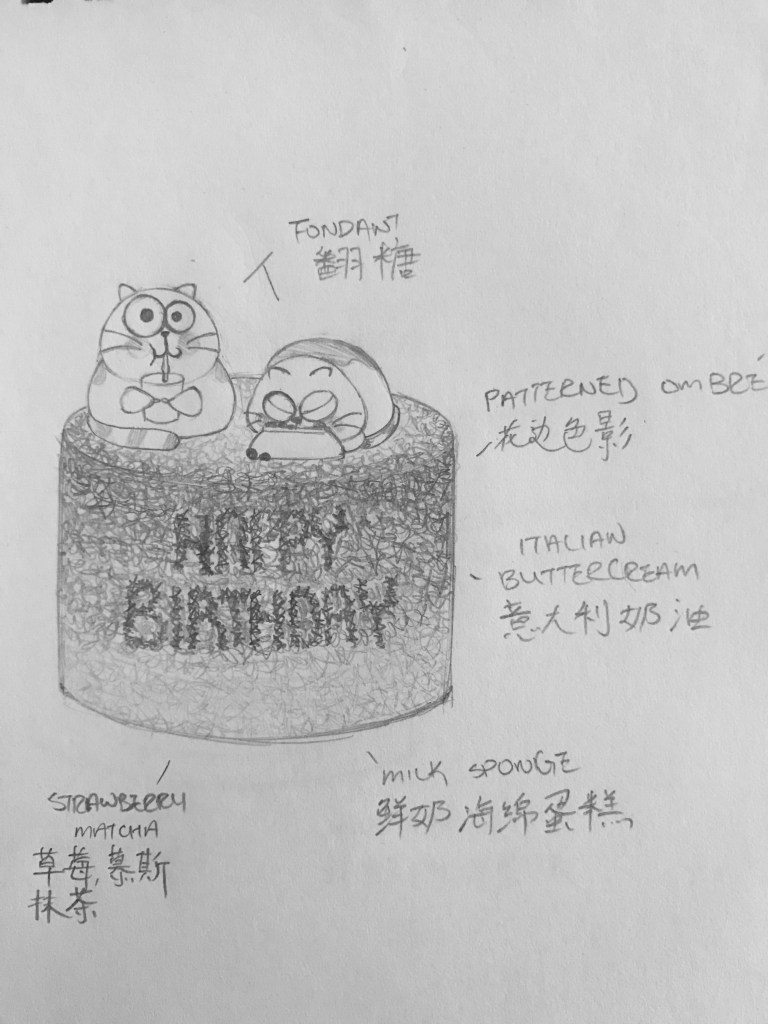 FONDANT
翻糖
PATTERNED OMBRÉ
花边色影
HAPPY
BIRTHDAY
ITALIAN
BUTTERCREAM
意大利奶油
MILK SPONGE
鲜奶海绵蛋糕
STRAWBERRY
MATCHA
草莓,慕斯
抹茶